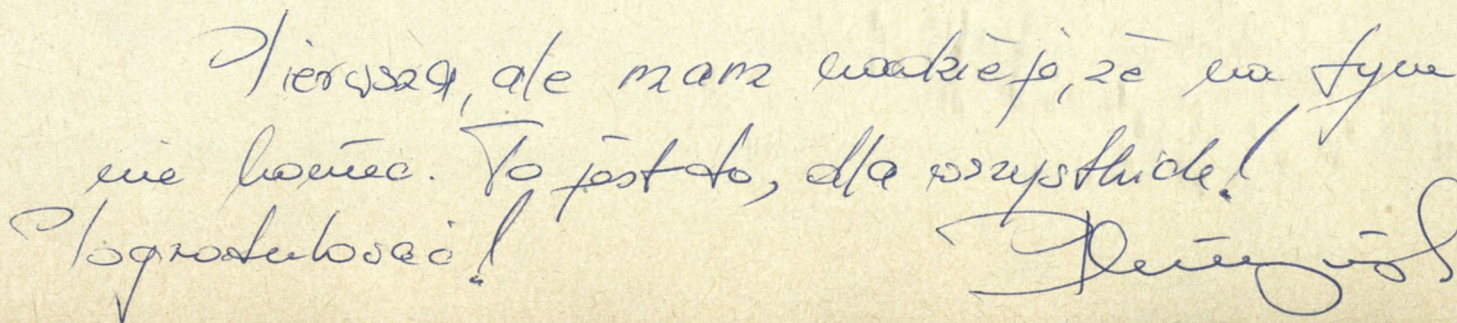 Pierwsza, ale mam nadzieję, że na tym
nie koniec. To jest to, dla wszystkich!
Pogratulować!